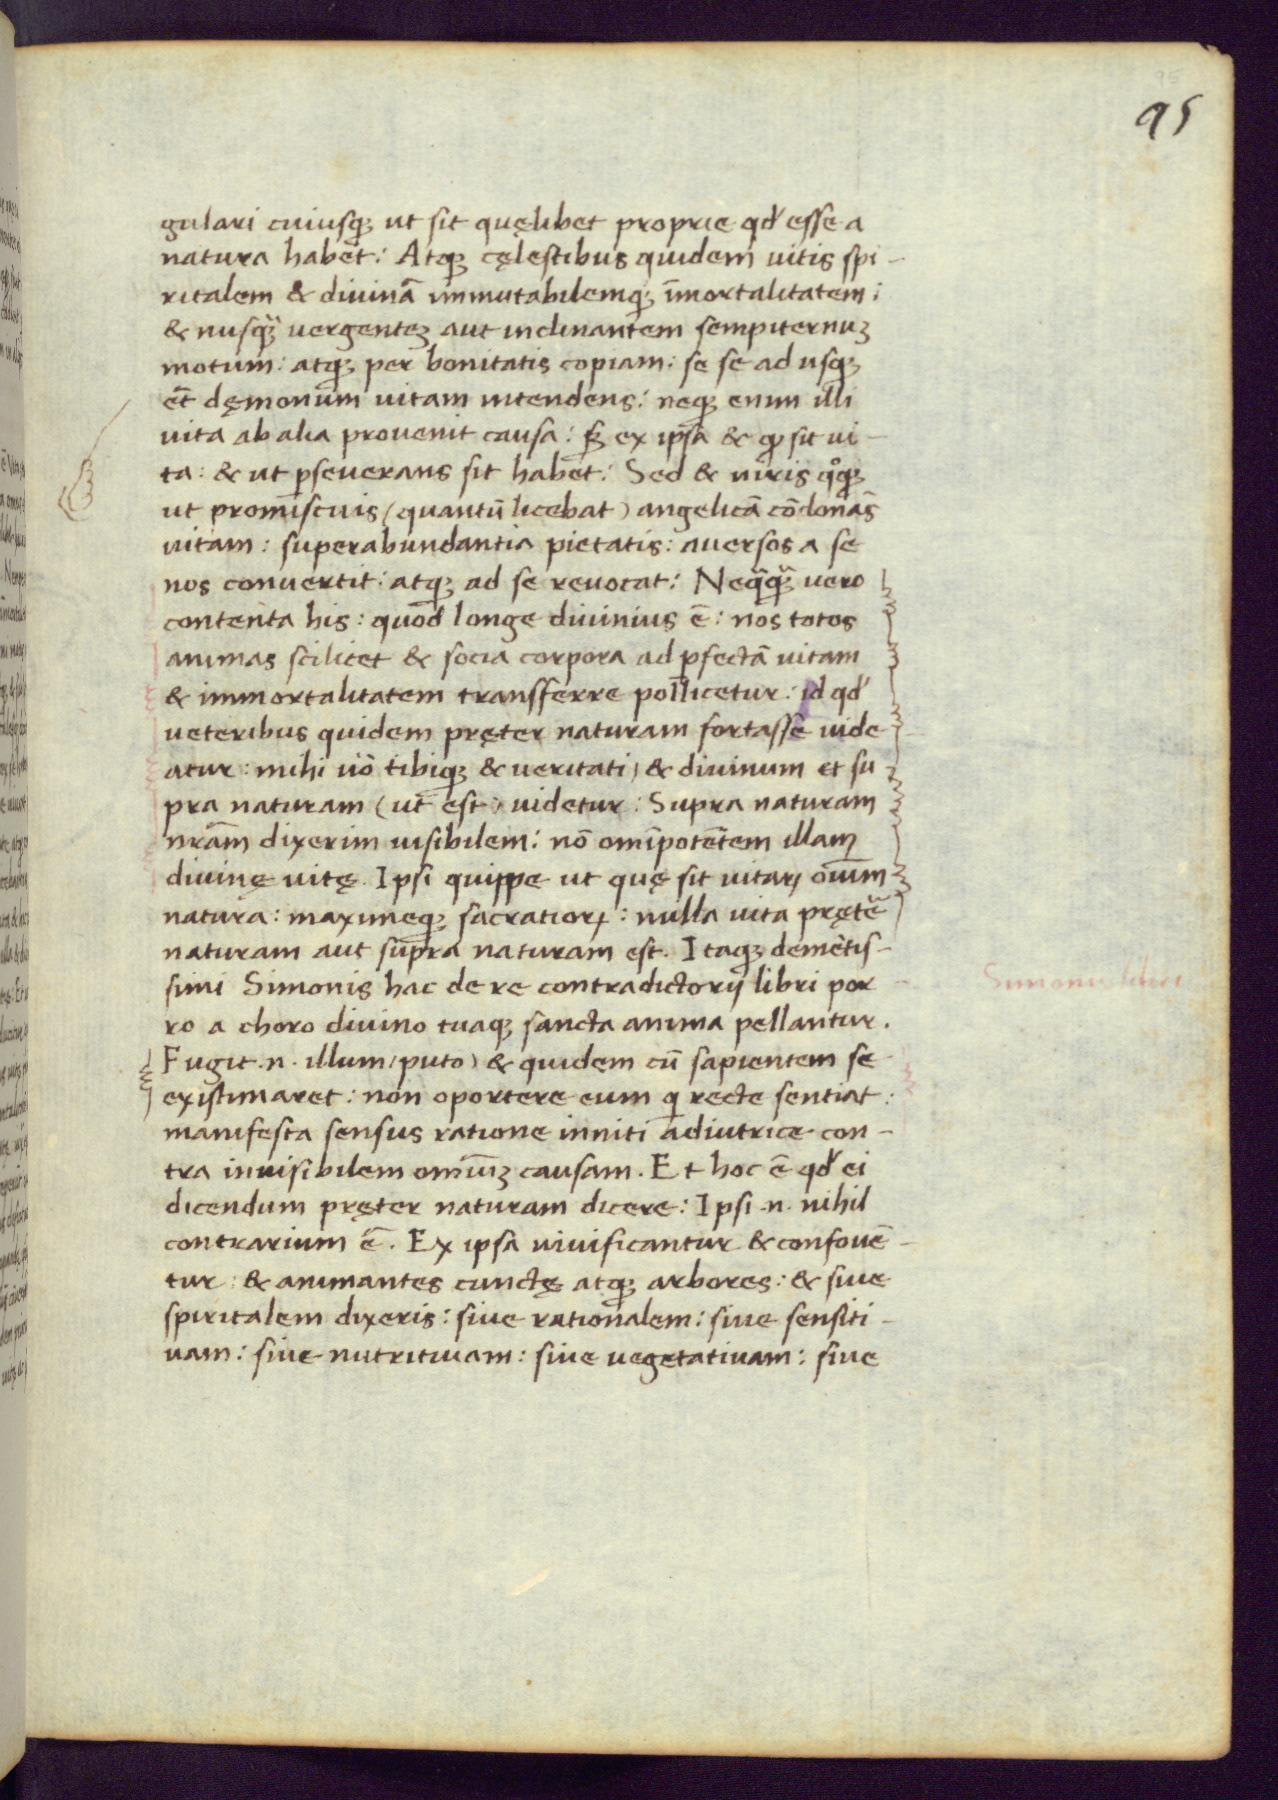 95
gulari cuiusqꝫ ut sit quęlibet proprie qd' esse a
natura habet: Atqꝫ cęlestibus quidem uitis spi-
ritalem & diuinā immutabilemqꝫ īmortalitatem:
& nusqᷓ uergenteꝫ aut inclinantem sempiternuꝫ
motum: atqꝫ per bonitatis copiam: se se ad usqꝫ
et̄ dęmonum uitam intendens: neqꝫ enim illi
uita ab alia prouenit causa: sꝫ ex ipsa & qꝫ sit ui-
ta: & ut ꝑseuerans sit habet: Sed & uiris qͦqꝫ
ut promiscuis (quantū licebat) angelicā cōdonās
uitam: superabundantia pietatis: auersos a se
nos conuertit: atqꝫ ad se reuocat: Neqᷓqᷓ uero
contenta his: quod longe diuinius ē: nos totos
animas scilicet & socia corpora ad ꝑfectā uitam
& immortalitatem transferre pollicetur: id qd'
ueteribus quidem pręter naturam fortasse uide
atur: mihi uō tibiqꝫ & ueritati) & diuinum et su-
pra naturam (ut est) uidetur: Supra naturam
nr̄am dixerim uisibilem: nō omīpotētem illam
diuinę uitę. Ipsi quippe ut quę sit uitaꝝ oīum
natura: maximeqꝫ sacratioꝝ: nulla uita pręter
naturam aut supra naturam est. Itaqꝫ demētis-
simi Simonis hac de re contradictorij libri por
ro a choro diuino tuaqꝫ sancta anima pellantur.
Simonis libri
Fugit .n. illum (puto) & quidem cū sapientem se
existimaret: non oportere eum q recte sentiat:
manifesta sensus ratione inniti adiutrice con-
tra inuisibilem omīuꝫ causam. Et hoc ē qd' ei
dicendum pręter naturam dicere: Ipsi .n. nihil
contrarium ē. Ex ipsa uiuificantur & confouē-
tur: & animantes cunctę atqꝫ arbores: & siue
spiritalem dixeris: siue rationalem: siue sensiti-
uam: siue nutritiuam: siue uegetatiuam: siue